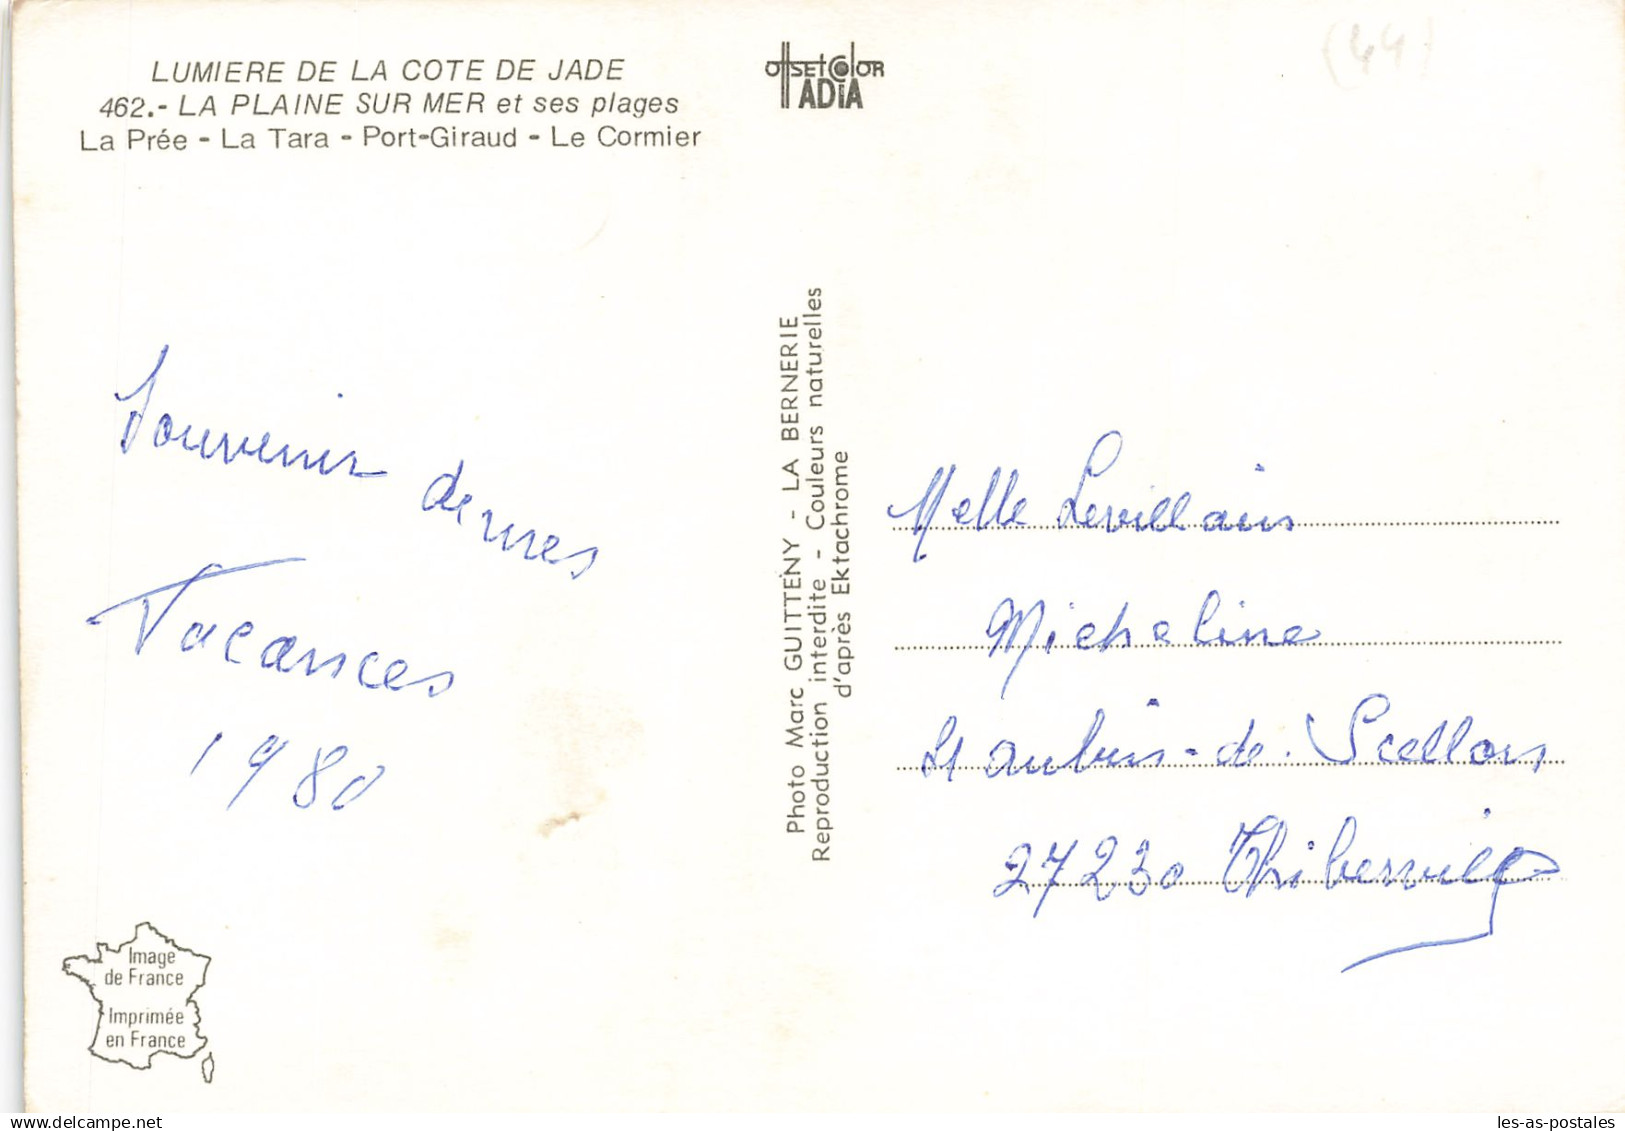 LUMIERE DE LA COTE DE JADE
462.- LA PLAINE SUR MER et ses plages
La Prée - La Tara - Port-Giraud - Le Cormier
OffSEt COlOR
IADIA
(44)
Souvenir de mes
Vacances
1980
Photo Marc GUITTENY - LA BERNERIE
Reproduction interdite - Couleurs naturelles
d'après Ektachrome
Melle Levillain
Micheline
St aubin-de-Scellon
27230 Thiberville
Image
de France
Imprimée
en France
delcampe.com
les-as-postales